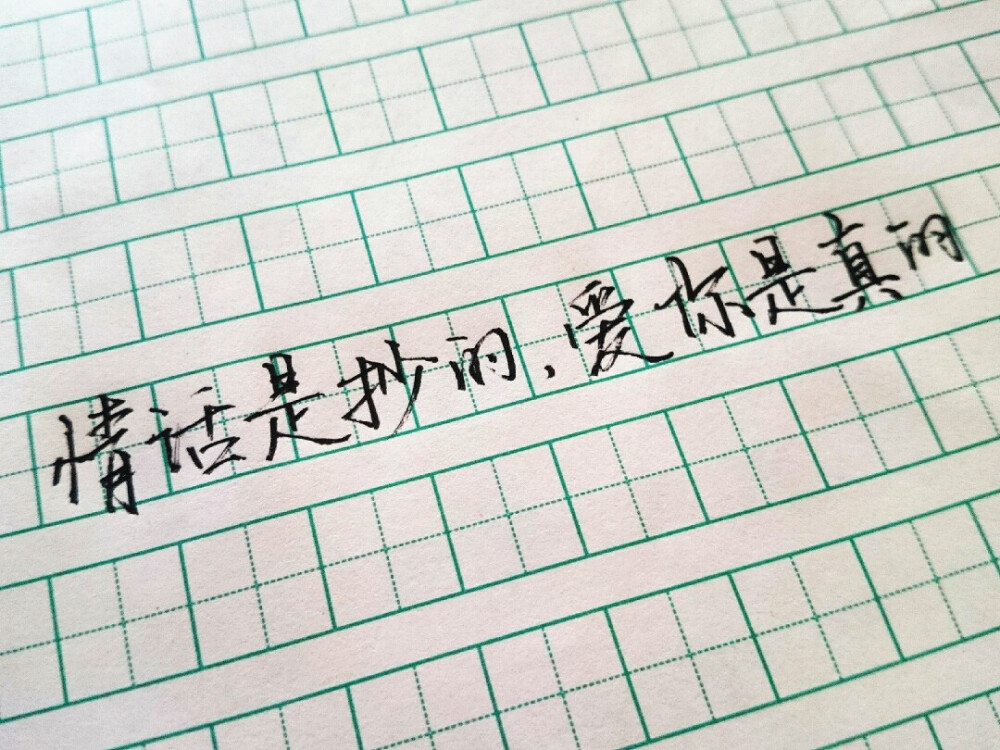 情话是抄的，爱你是真的